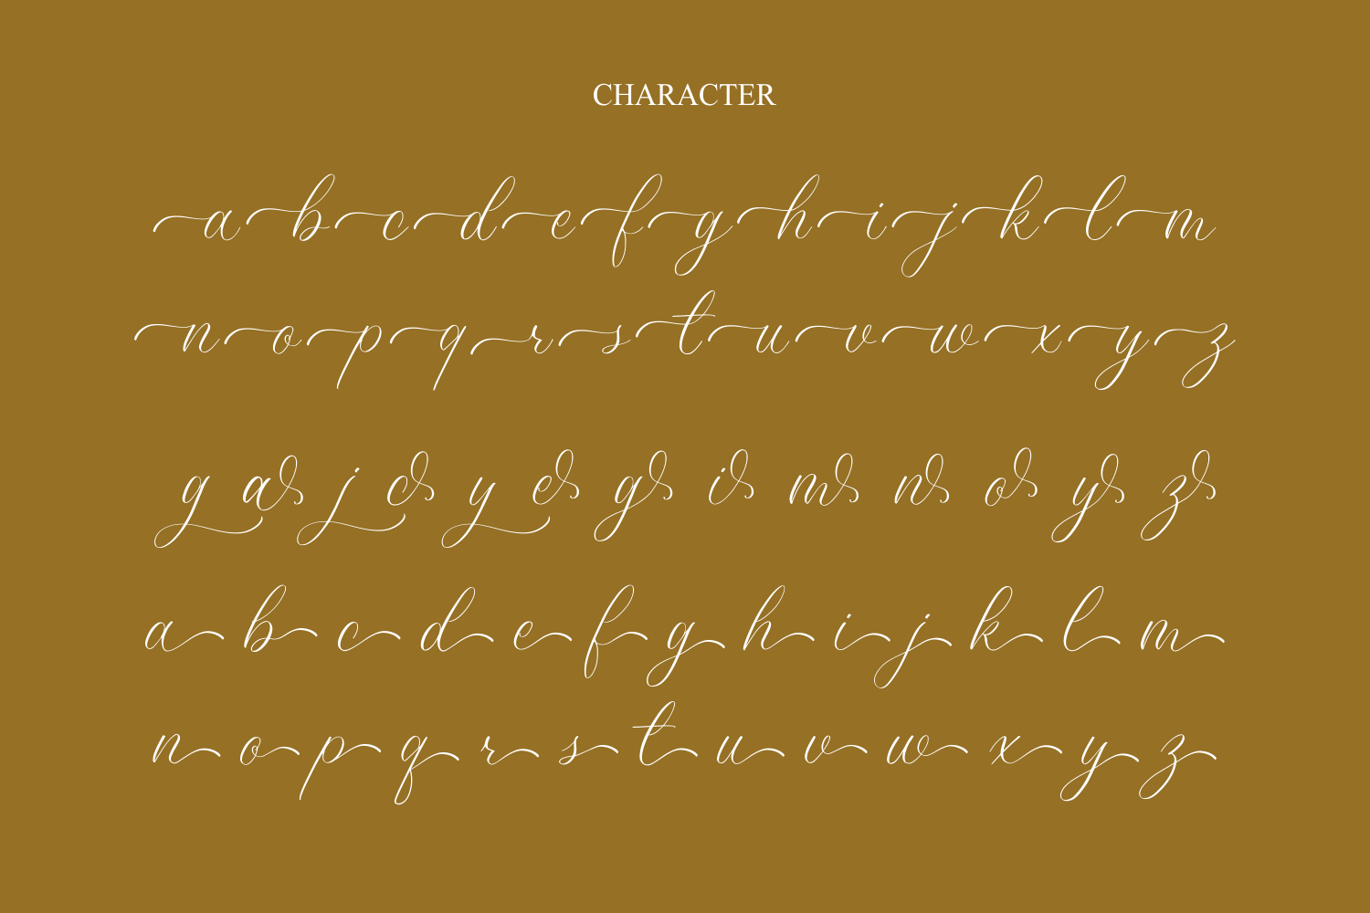 CHARACTER
a b c d e f g h i j k l m
n o p q r s t u v w x y z
g a j c y e g i m n o y z
a b c d e f g h i j k l m
n o p q r s t u v w x y z